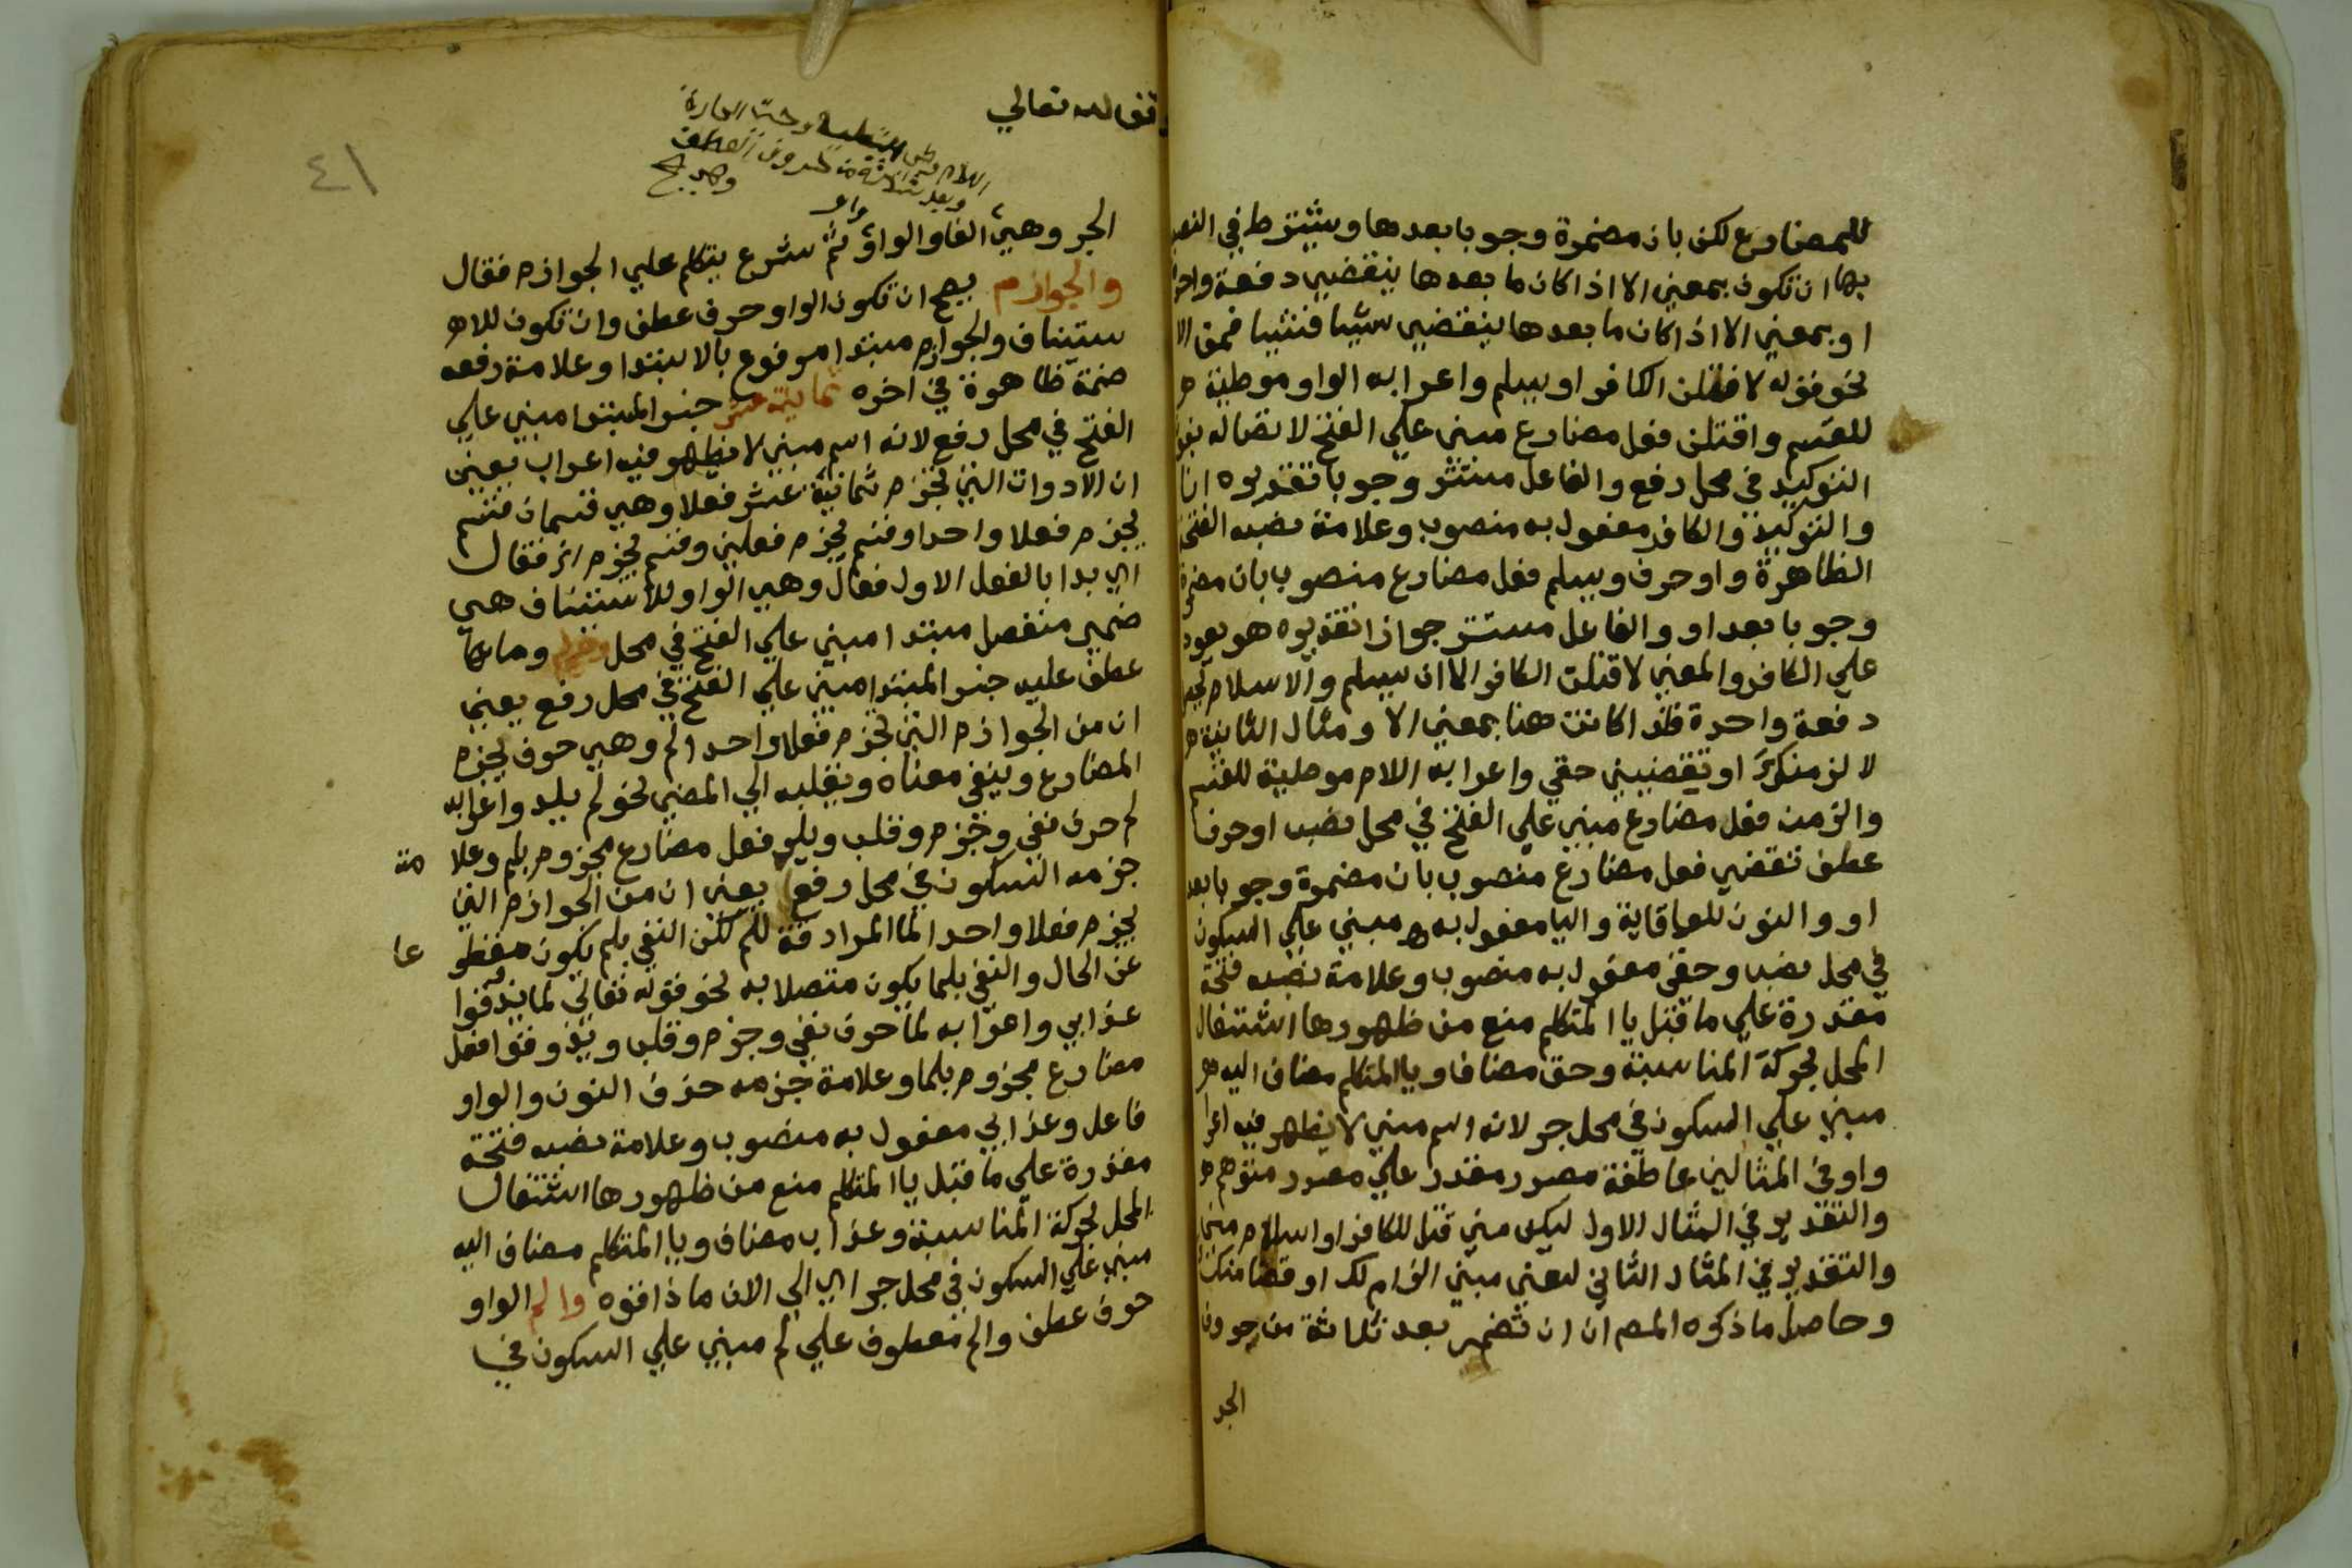 للمضارع لكن بان مضمرة وجوبا بعدها ويشترط في النصب
بها ان تكون بمعني الا اذا كان ما بعدها ينقضي دفعة واحدة
او بمعني الا اذا كان ما بعدها ينقضي شيا فشيا فمن الا
نحو قوله لاقتلن الكافر او يسلم واعرابه الواو موطية
للقسم واقتلن فعل مضارع مبني علي الفتح لاتصاله بنون
التوكيد في محل رفع والفاعل مستتر وجوبا تقديره انا
والتوكيد والكافر مفعول به منصوب وعلامة نصبه الفتحة
الظاهرة واو حرف ويسلم فعل مضارع منصوب بان مضمرة
وجوبا بعد او والفاعل مستتر جوازا تقديره هو يعود
علي الكافر والمعني لاقتلن الكافر الا ان يسلم والاسلام يحصل
دفعة واحدة فلذا كانت هنا بمعني الا ومثال الثانية
لالزمنك او تقضيني حقي واعرابه اللام موطية للقسم
والزمن فعل مضارع مبني علي الفتح في محل نصب او حرف
عطف تقضي فعل مضارع منصوب بان مضمرة وجوبا بعد
او والنون للوقاية واليا مفعول به مبني علي السكون
في محل نصب وحقي مفعول به منصوب وعلامة نصبه فتحة
مقدرة علي ما قبل يا المتكلم منع من ظهورها اشتغال
المحل بحركة المناسبة وحق مضاف ويا المتكلم مضاف اليه
مبني علي السكون في محل جر لانه اسم مبني لا يظهر فيه اعرا
واو في المثالين عاطفة مصدر مقدر علي مصدر متوهم
والتقدير في المثال الاول ليكن مني قتل للكافر او اسلام منه
والتقدير في المثال الثاني ليكن مني الزام لك او قضا منك
وحاصل ما ذكره المص ان ان تضمر بعد ثلاثة من حروف
الجر
قوله تعالي
٤١
اللام
وبعد ثلاثة من حروف العطف
واو
الجر وهي الفا والواو ثم شرع يتكلم علي الجوازم فقال
والجوازم يصح ان تكون الواو حرف عطف وان تكون للا
ستيناف والجوازم مبتدا مرفوع بالابتدا وعلامة رفعه
ضمة ظاهرة في اخره ثمانية عشر خبر المبتدا مبني علي
الفتح في محل رفع لانه اسم مبني لا يظهر فيه اعراب يعني
ان الادوات التي تجزم ثمانية عشر فعلا وهي قسمان قسم
يجزم فعلا واحدا وقسم يجزم فعلين وقسم يجزم فقال
اي بدا بالفعل الاول فقال وهي الواو للاستيناف هي
ضمير منفصل مبتدا مبني علي الفتح في محل وما
عطف عليه خبر المبتدا مبني علي الفتح في محل رفع يعني
ان من الجوازم التي تجزم فعلا واحدا لم وهي حرف يجزم
المضارع وينفي معناه ويقلبه الي المضي نحو لم يلد واعرابه
لم حرف نفي وجزم وقلب ويلد فعل مضارع مجزوم بلم وعلا مة
جزمه السكون في محل رفع يعني ان من الجوازم التي
يجزم فعلا واحدا لما المرادفة للم لكن النفي بلم يكون منقطعا
عن الحال والنفي بلما يكون متصلا به نحو قوله تعالي لما يذوقوا
عذابي واعرابه لما حرف نفي وجزم وقلب ويذوقوا فعل
مضارع مجزوم بلما وعلامة جزمه حذف النون والواو
فاعل وعذابي مفعول به منصوب وعلامة نصبه فتحة
مقدرة علي ما قبل يا المتكلم منع من ظهورها اشتغال
المحل بحركة المناسبة وعذاب مضاف ويا المتكلم مضاف اليه
مبني علي السكون في محل جر اي الي الان ما ذاقوه والم الواو
حرف عطف والم معطوف علي لم مبني علي السكون في